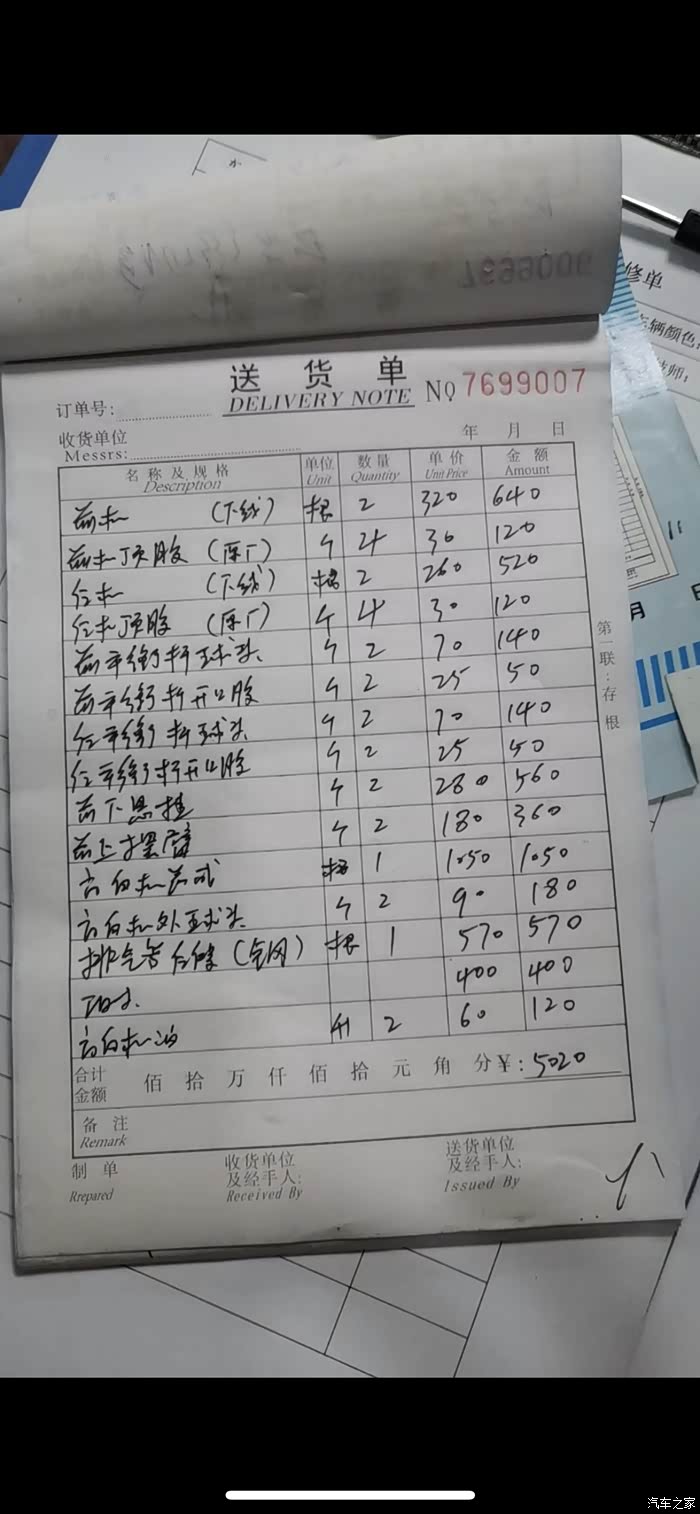 7699006
修单
车辆颜色:
技师:
送货单
DELIVERY NOTE
No 7699007
订单号:
收货单位
Messrs:
年 月 日
名称及规格 单位 数量 单价 金额
Description Unit Quantity Unit Price Amount
前机 (下线) 根 2 320 640
前机顶胶 (原厂) 个 4 30 120
后机 (下线) 根 2 260 520
后机顶胶 (原厂) 个 4 30 120
前平衡杆球头 个 2 70 140
前平衡杆开口胶 个 2 25 50
后平衡杆球头 个 2 70 140
后平衡杆开口胶 个 2 25 50
前下悬挂 个 2 280 560
前上摆臂 个 2 180 360
方向机总成 根 1 1050 1050
方向机外球头 个 2 90 180
排气管后 根 1 570 570
工时 400 400
方向机油 升 2 60 120
合计
金额
佰 拾 万 仟 佰 拾 元 角 分 ¥: 5020
备注
Remark
第一联:存根
制单
Rrepared
收货单位
及经手人:
Received By
送货单位
及经手人:
Issued By
月 日
汽车之家